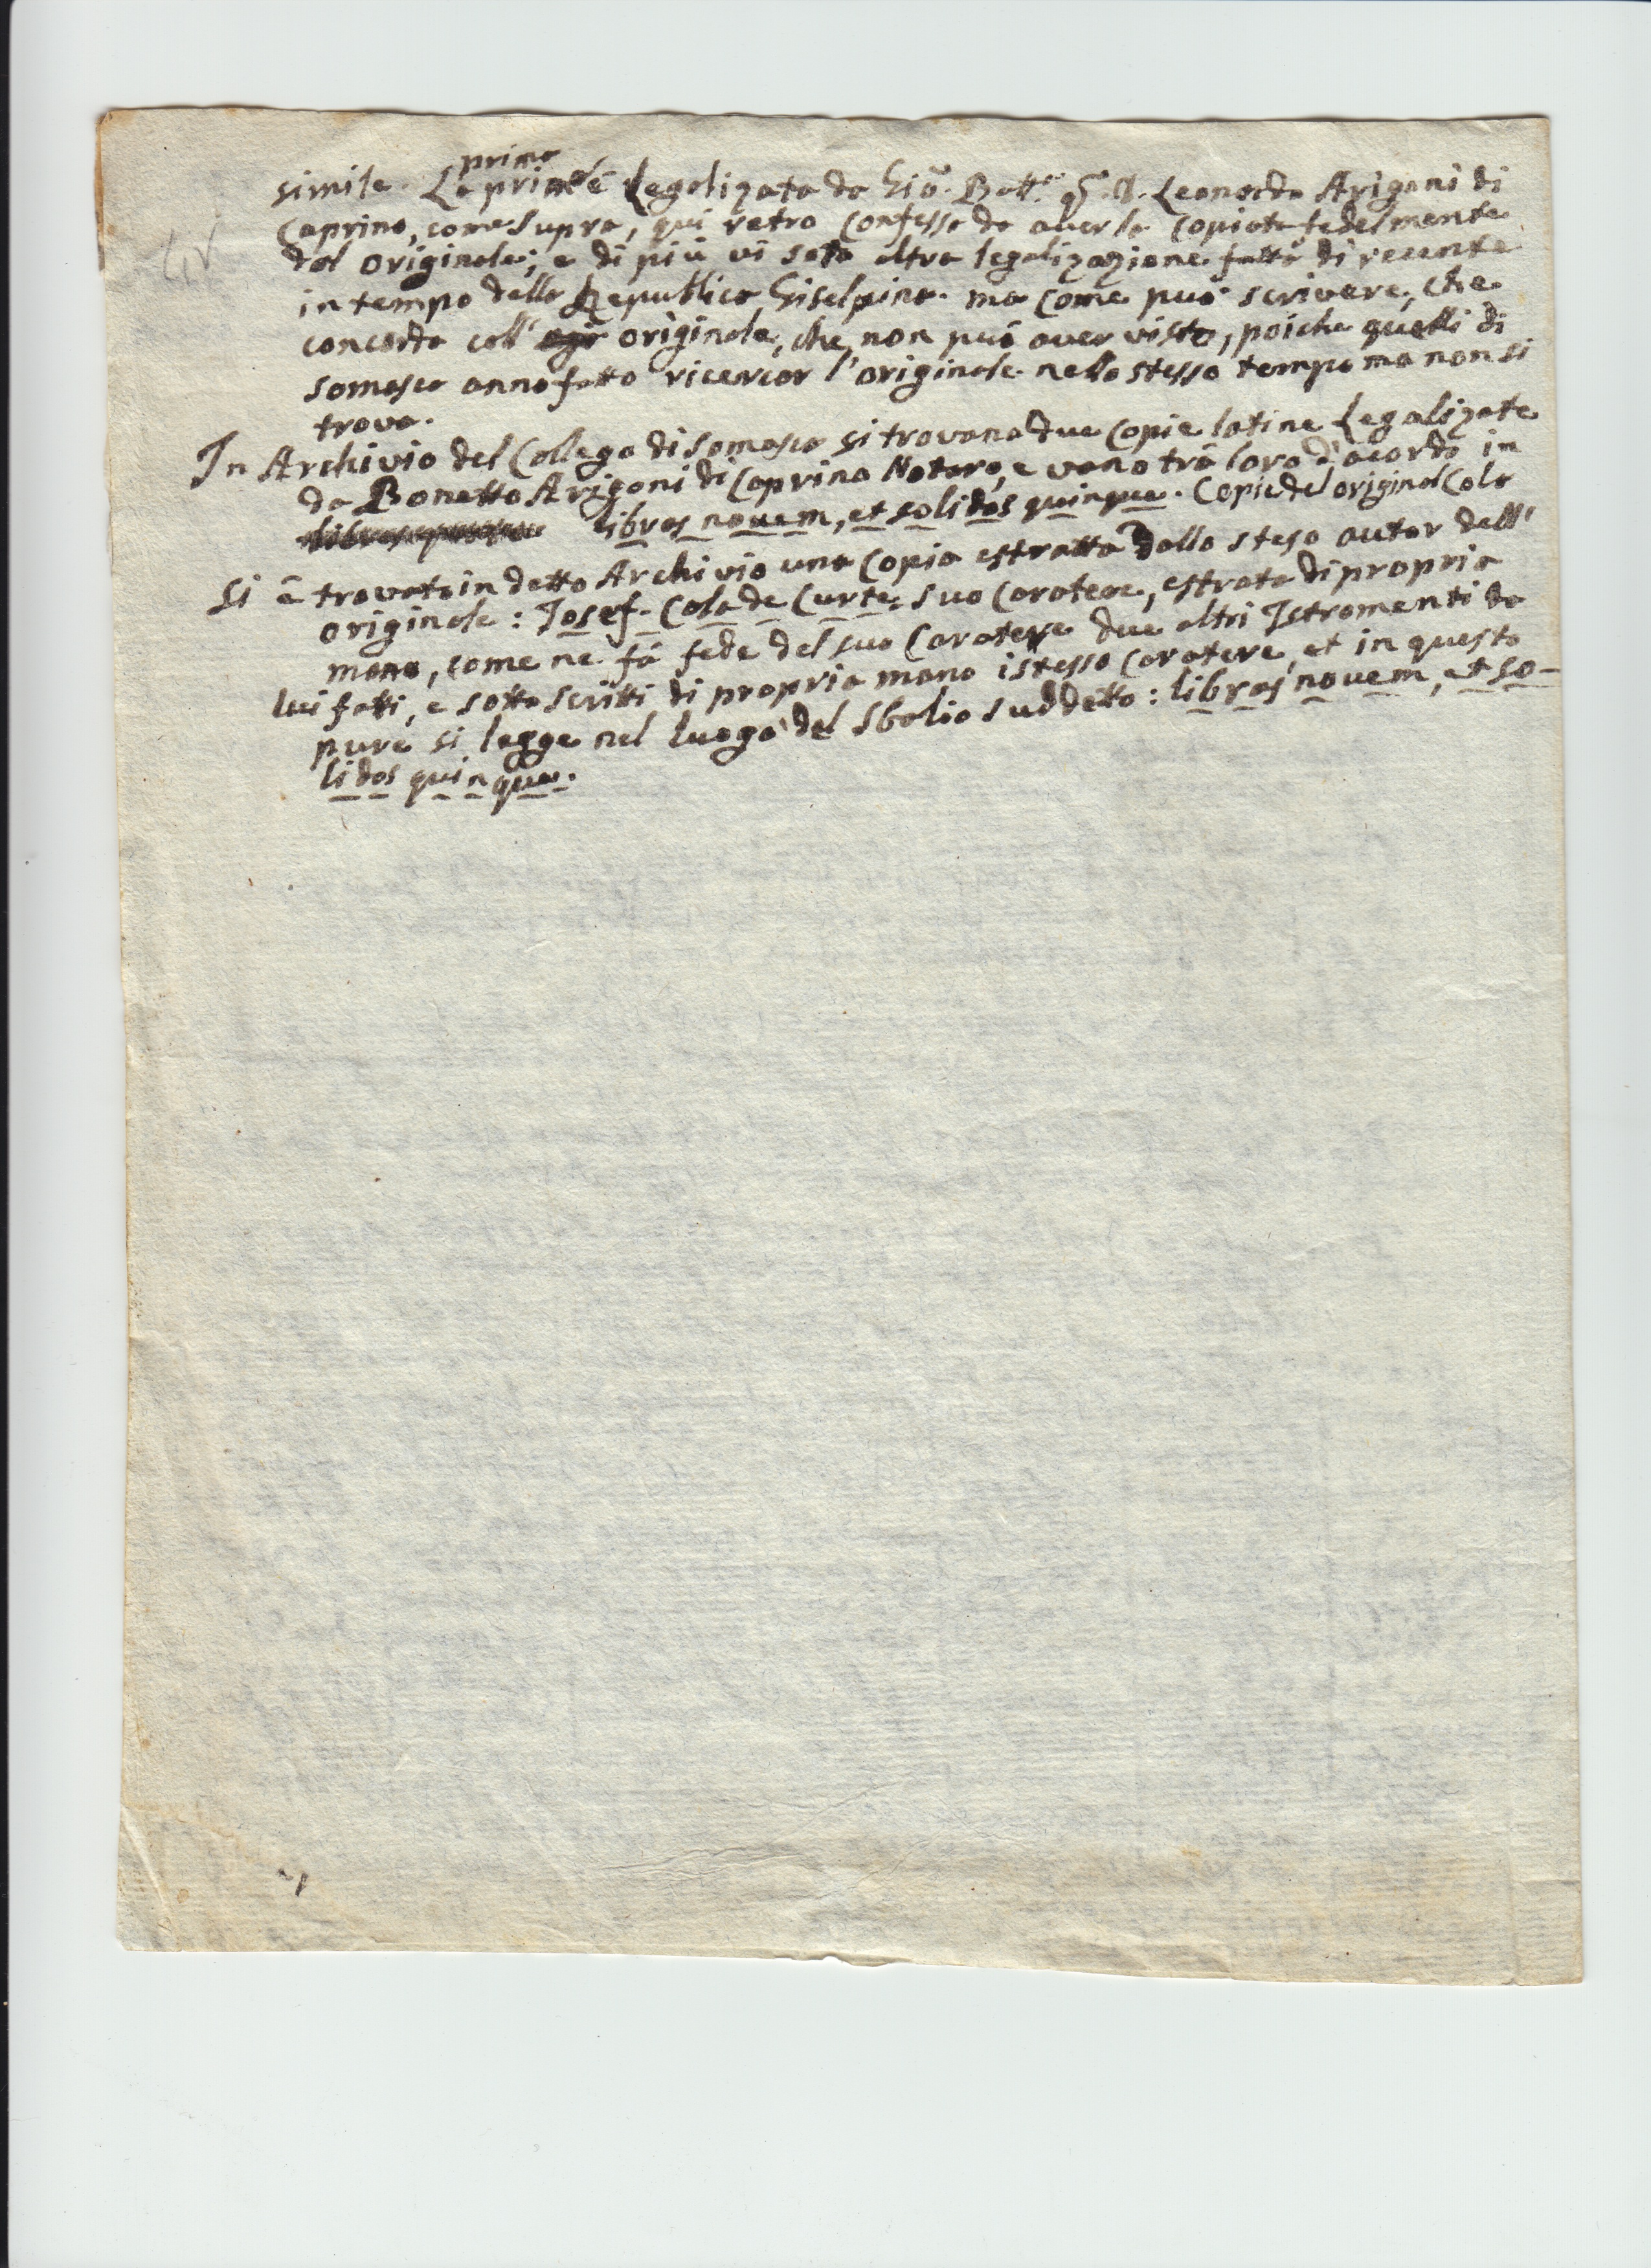 prima
simile. La prima è Legalizata da Giõ. Batt.ª q. Leonardo Arigoni di
Caprino, come Supra, qui retro Confessa da averla Copiata fedelmente
dal originale; e di più vi sato altra legalizazione fatta di recente
in tempo della Republica Giselpina. ma Come può scrivere, che
concorda coll' originale, che non può aver visto, poiche quelli di
somasca anno fatto ricercar l'originale nello stesso tempo ma non si
trova.
In Archivio del Collego di somasca si trovano due Copie latine Legalizate
da Bonetto Arigoni di Caprino Notaro, e vano trà loro d'acordo in
libras novem, et solidos quinque. Copie del original Cola
Si è trovato in detto Archivio una Copia estratta dallo steso autor dell'
originale: Josef. Cola de Curte, suo Caratere, estrata di propria
mano, come ne fà fede del suo Caratere due altri Istromenti da
lui fatti, e sotto scritti di propria mano istesso Caratere, et in questo
pure si legge nel luogo del Sbalio suddetto: libras novem, et so-
lidos quinque.